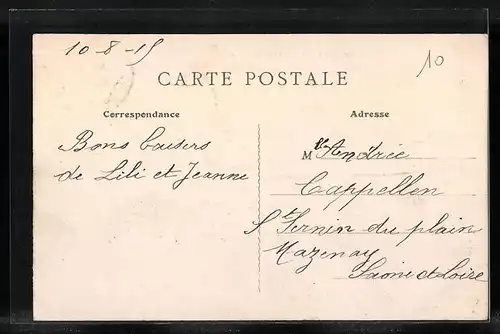 10-8-15
10
CARTE POSTALE
Correspondance
Adresse
Bons baisers
de Lili et Jeanne
Mlle Andrée
Cappellen
St Sernin du plain
Mazenay
Saone et Loire